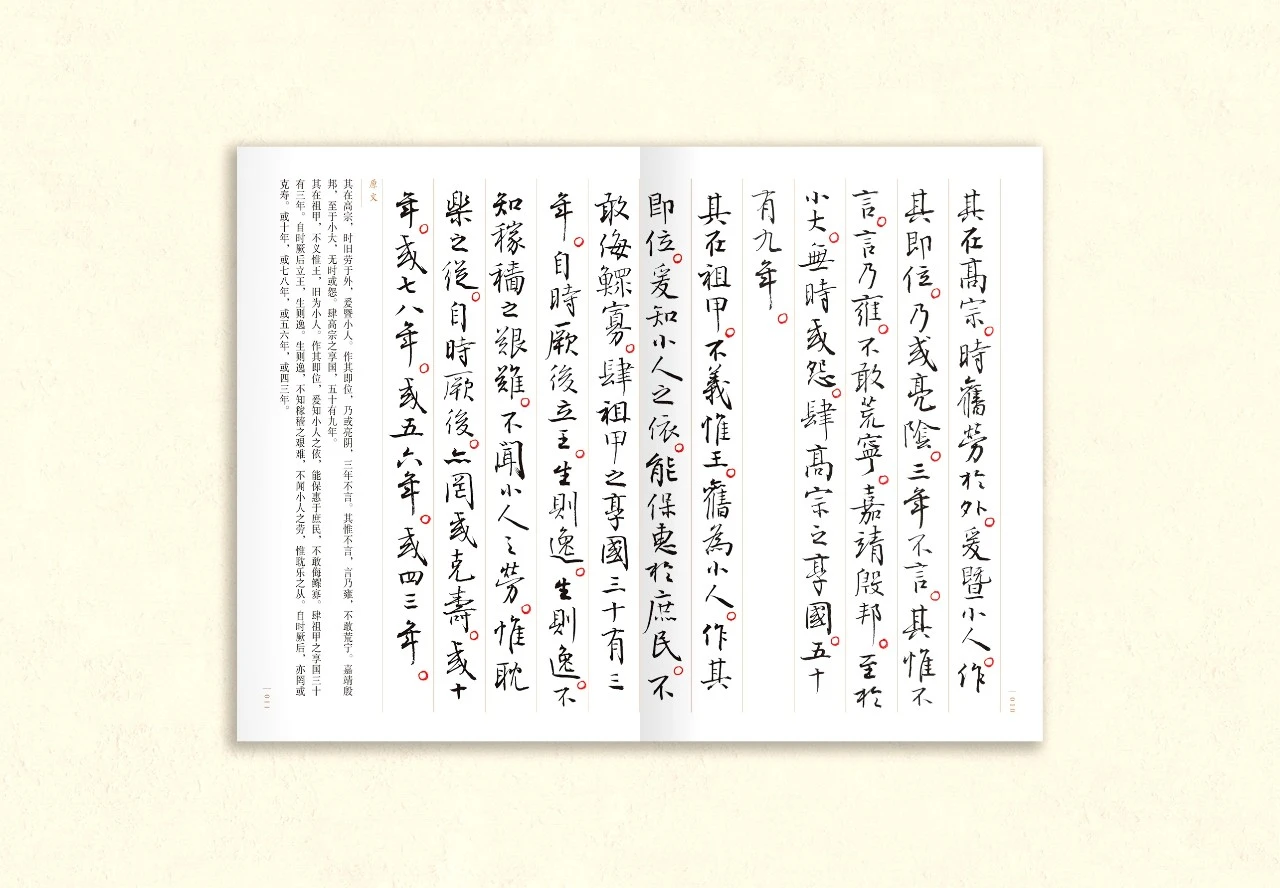 其在高宗。時舊勞於外。爰暨小人。作
其即位。乃或亮陰。三年不言。其惟不
言。言乃雍。不敢荒寧。嘉靖殷邦。至於
小大。無時或怨。肆高宗之享國。五十
有九年。
其在祖甲。不義惟王。舊為小人。作其
即位。爰知小人之依。能保惠於庶民。不
敢侮鰥寡。肆祖甲之享國三十有三
年。自時厥後立王。生則逸。生則逸。不
知稼穡之艱難。不聞小人之勞。惟耽
樂之從。自時厥後。亦罔或克壽。或十
年。或七八年。或五六年。或四三年。
原文
其在高宗，时旧劳于外，爰暨小人。作其即位，乃或亮阴，三年不言。其惟不言，言乃雍，不敢荒宁。嘉靖殷
邦，至于小大，无时或怨。肆高宗之享国，五十有九年。
其在祖甲，不义惟王，旧为小人。作其即位，爰知小人之依，能保惠于庶民，不敢侮鳏寡。肆祖甲之享国三十
有三年。自时厥后立王，生则逸。生则逸，不知稼穑之艰难，不闻小人之劳，惟耽乐之从。自时厥后，亦罔或
克寿。或十年，或七八年，或五六年，或四三年。